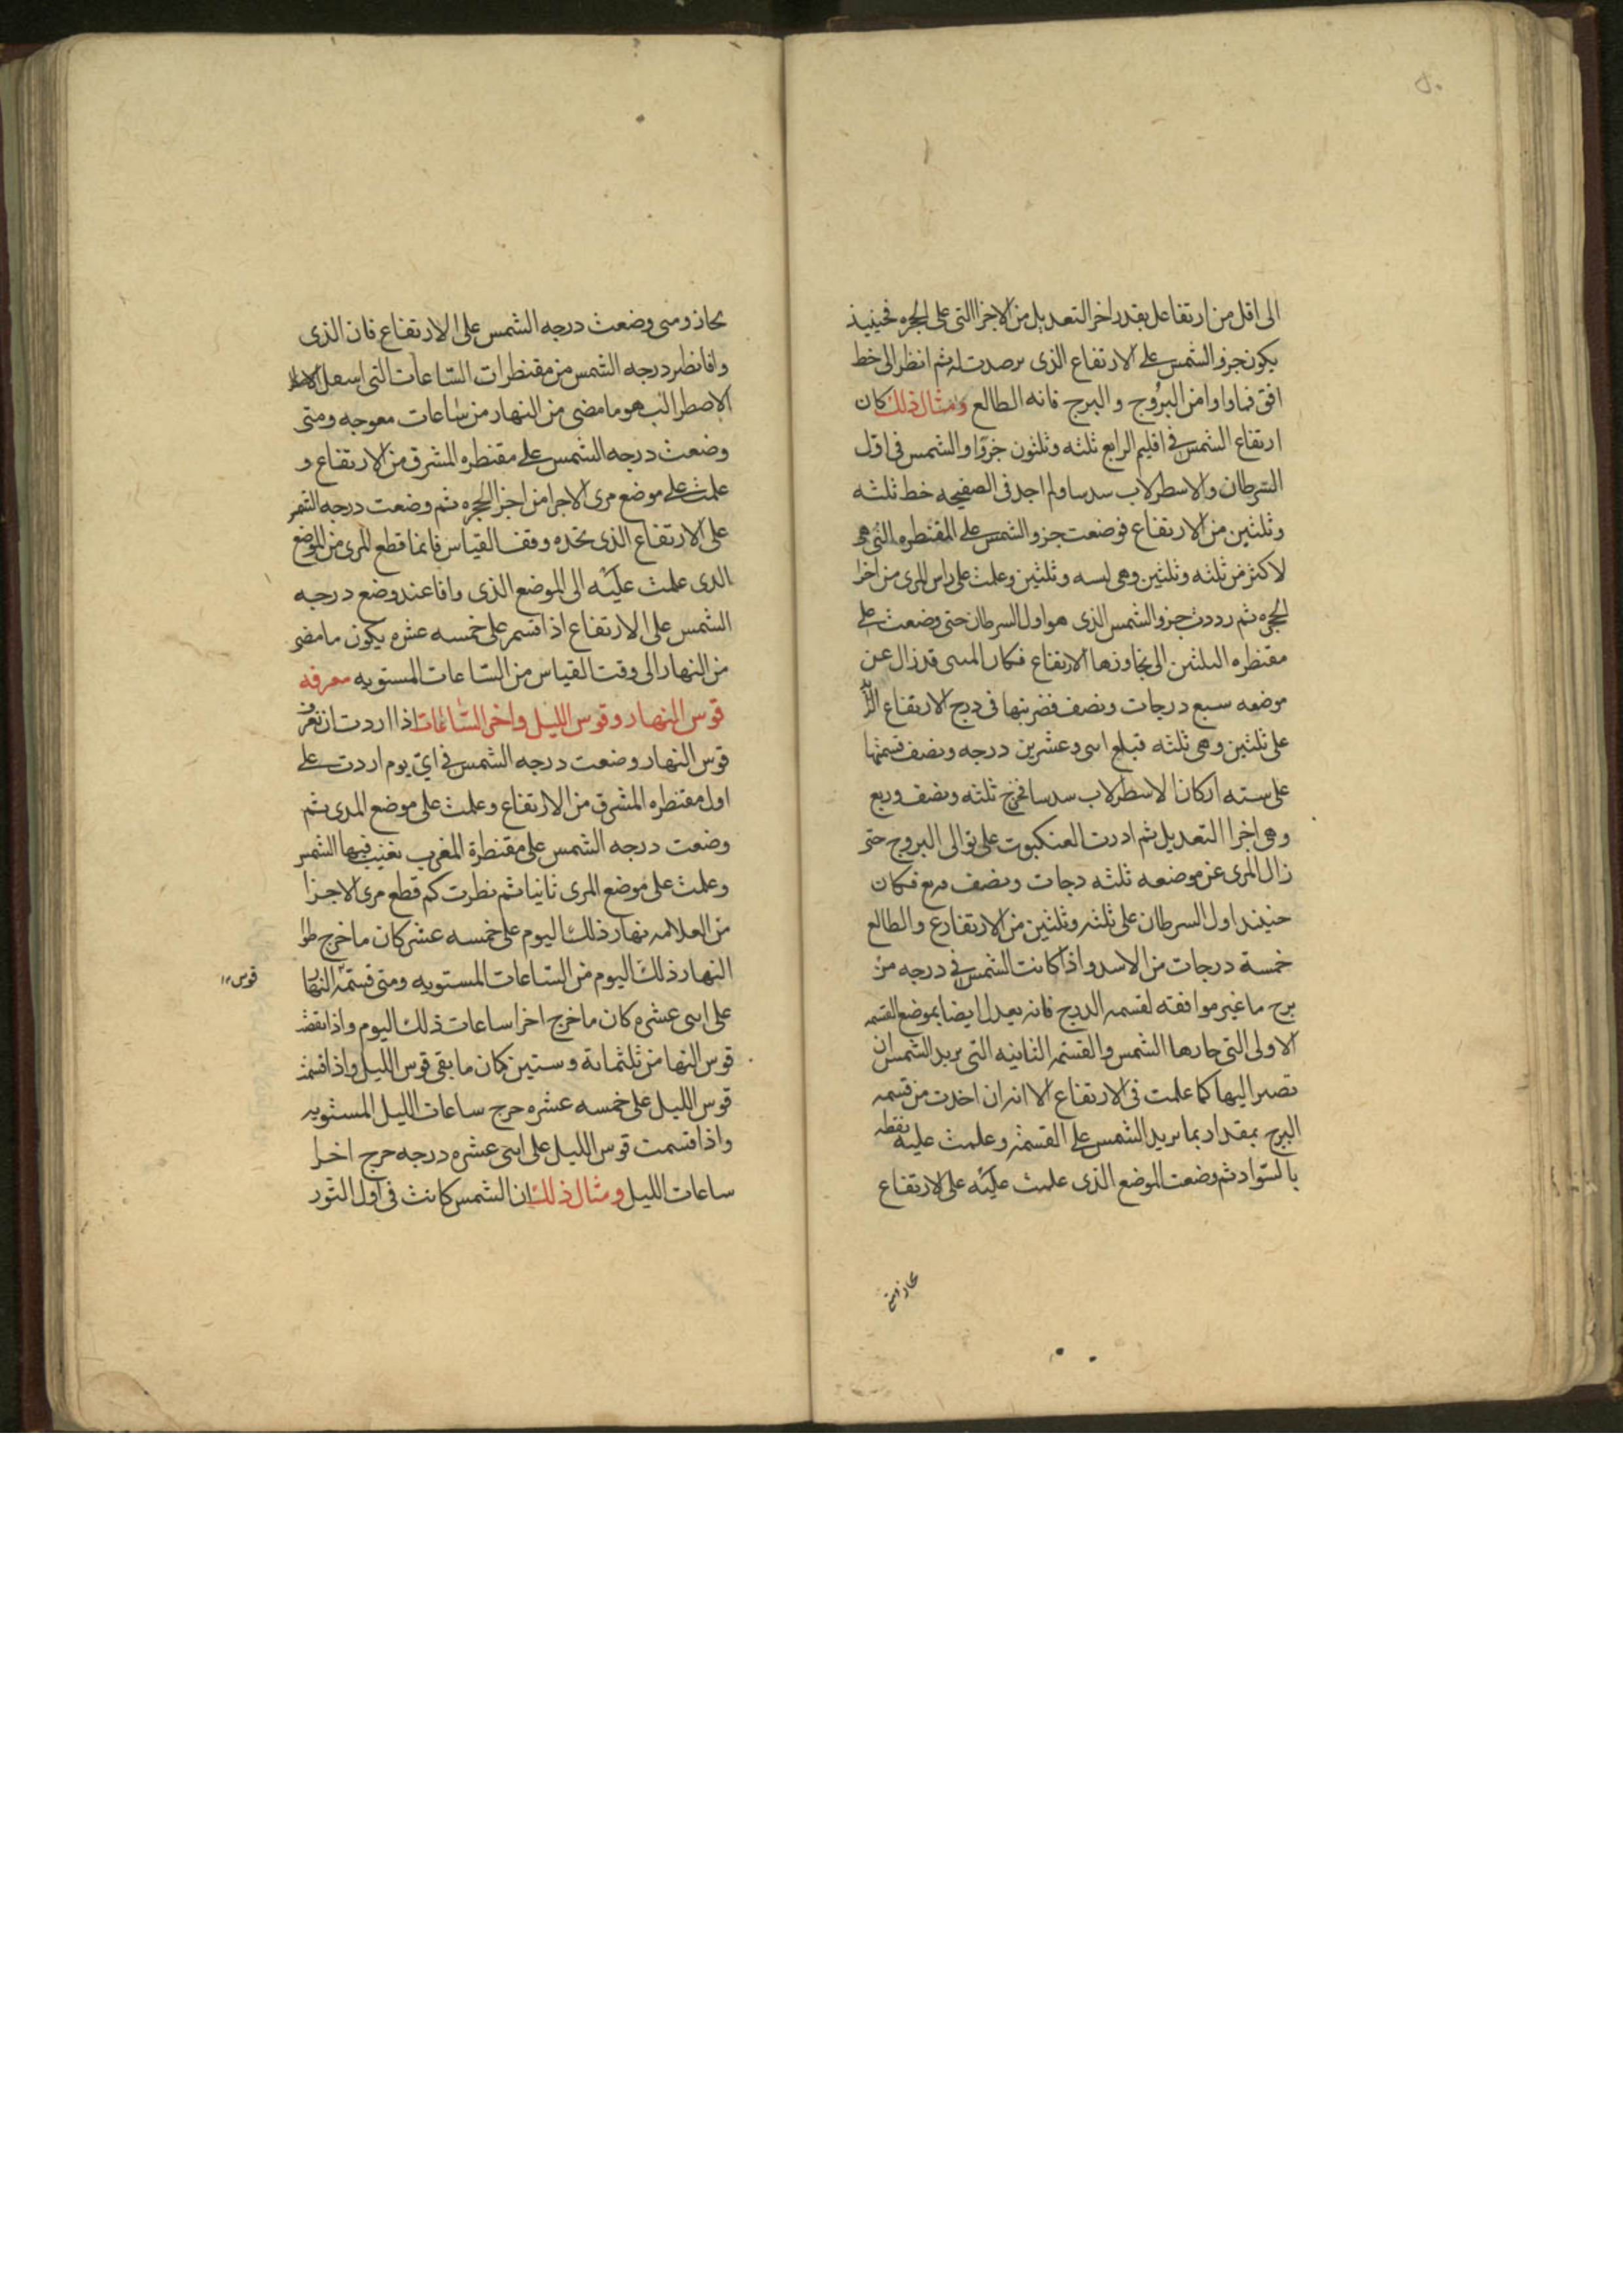 الى اقل من ارتفاعك بقدر اخر التعديل من الاجزا التى على الحجره فحينيذ
يكون جزو الشمس على الارتفاع الذى رصدت له ثم انظر الى خط
افق فما وا وا من البروج و البرج فانه الطالع ومثال ذلك كان
ارتفاع الشمس فى اقليم الرابع ثلثه وثلثون جزوا والشمس فى اول
السرطان والاسطرلاب سدسا ولم اجد فى الصفيحه خط ثلثه
وثلثين من الارتفاع فوضعت جزو الشمس على المقنطره التى هى
لاكثر من ثلثه وثلثين وهى لسه وثلثين وعلمت على راس المرى من اخرا
الحجره ثم رددت جزو الشمس الذى هو اول السرطان حتى وضعت على
مقنطره الثلثين الى تجاوزها الارتفاع فكان قد زال عن
موضعه سبع درجات ونصف فضربتها فى درج الارتفاع
على ثلثين وهى ثلثه فبلغ اسى وعشرين درجه ونصف قسمتها
على سته اركان الاسطرلاب سدسا فخرج ثلثه ونصف وربع
وهى اجزا التعديل ثم ادرت العنكبوت على توالى البروج حتى
زال المرى عن موضعه ثلثه دجات ونصف وربع فكان
حينيذ اول السرطان على ثلثه وثلثين من الارتفاع والطالع
خمسة درجات من الاسد واذا كانت الشمس فى درجه من
برج ما غير موافقه لقسمه الدرج فانه يعدل ايضا بموضع القسمه
الاولى التى جازها الشمس والقسمه الثانيه التى يريد الشمس ان
تصير اليها كما علمت فى الارتفاع الا انه ان اخذت من قسمه
البرج بمقدار بما يريد الشمس على القسمه وعلمت عليه نقطه
بالسواد ثم وضعت الموضع الذى علمت عليه على الارتفاع
يحاذ ومتى وضعت درجه الشمس على الارتفاع فان الذى
وافا نظير درجه الشمس من مقنطرات الساعات التى اسفل
الاصطرالب هو ما مضى من النهار من ساعات معوجه ومتى
وضعت درجه الشمس على مقنطره المشرق من الارتفاع و
علمت على موضع مرى الاجرا من اجزا الحجره ثم وضعت درجه الشمس
على الارتفاع الذى تجده وقف القياس فانما قطع المرى من الموضع
الذى علمت عليه الى الموضع الذى وافا عند وضع درجه
الشمس على الارتفاع اذا قسم على خمسه عشره يكون ما مضى
من النهار الى وقت القياس من الساعات المستويه معرفه
قوس النهار وقوس الليل واخر الساعات اذا اردت ان تعرف
قوس النهار وضعت درجه الشمس فى اى يوم اردت على
اول مقنطره المشرق من الارتفاع وعلمت على موضع المدى ثم
وضعت درجه الشمس على مقنطرة المغرب تغيب فيها الشمس
وعلمت على موضع المرى ثانيا ثم نظرت كم قطع مرى الاجزا
من العلامه نهار ذلك اليوم على خمسه عشر كان ما خرج طول
النهار ذلك اليوم من الساعات المستويه ومتى قسمه النها
على اسى عشره كان ما خرج اخرا ساعات ذلك اليوم واذا نقصت
قوس النها من ثلثمائة وستين كان ما بقى قوس الليل واذا قسمت
قوس الليل على خمسه عشره خرج ساعات الليل المستويه
واذا قسمت قوس الليل على اسى عشره درجه خرج اخرا
ساعات الليل ومثال ذلك ان الشمس كانت فى اول الثور
قوس